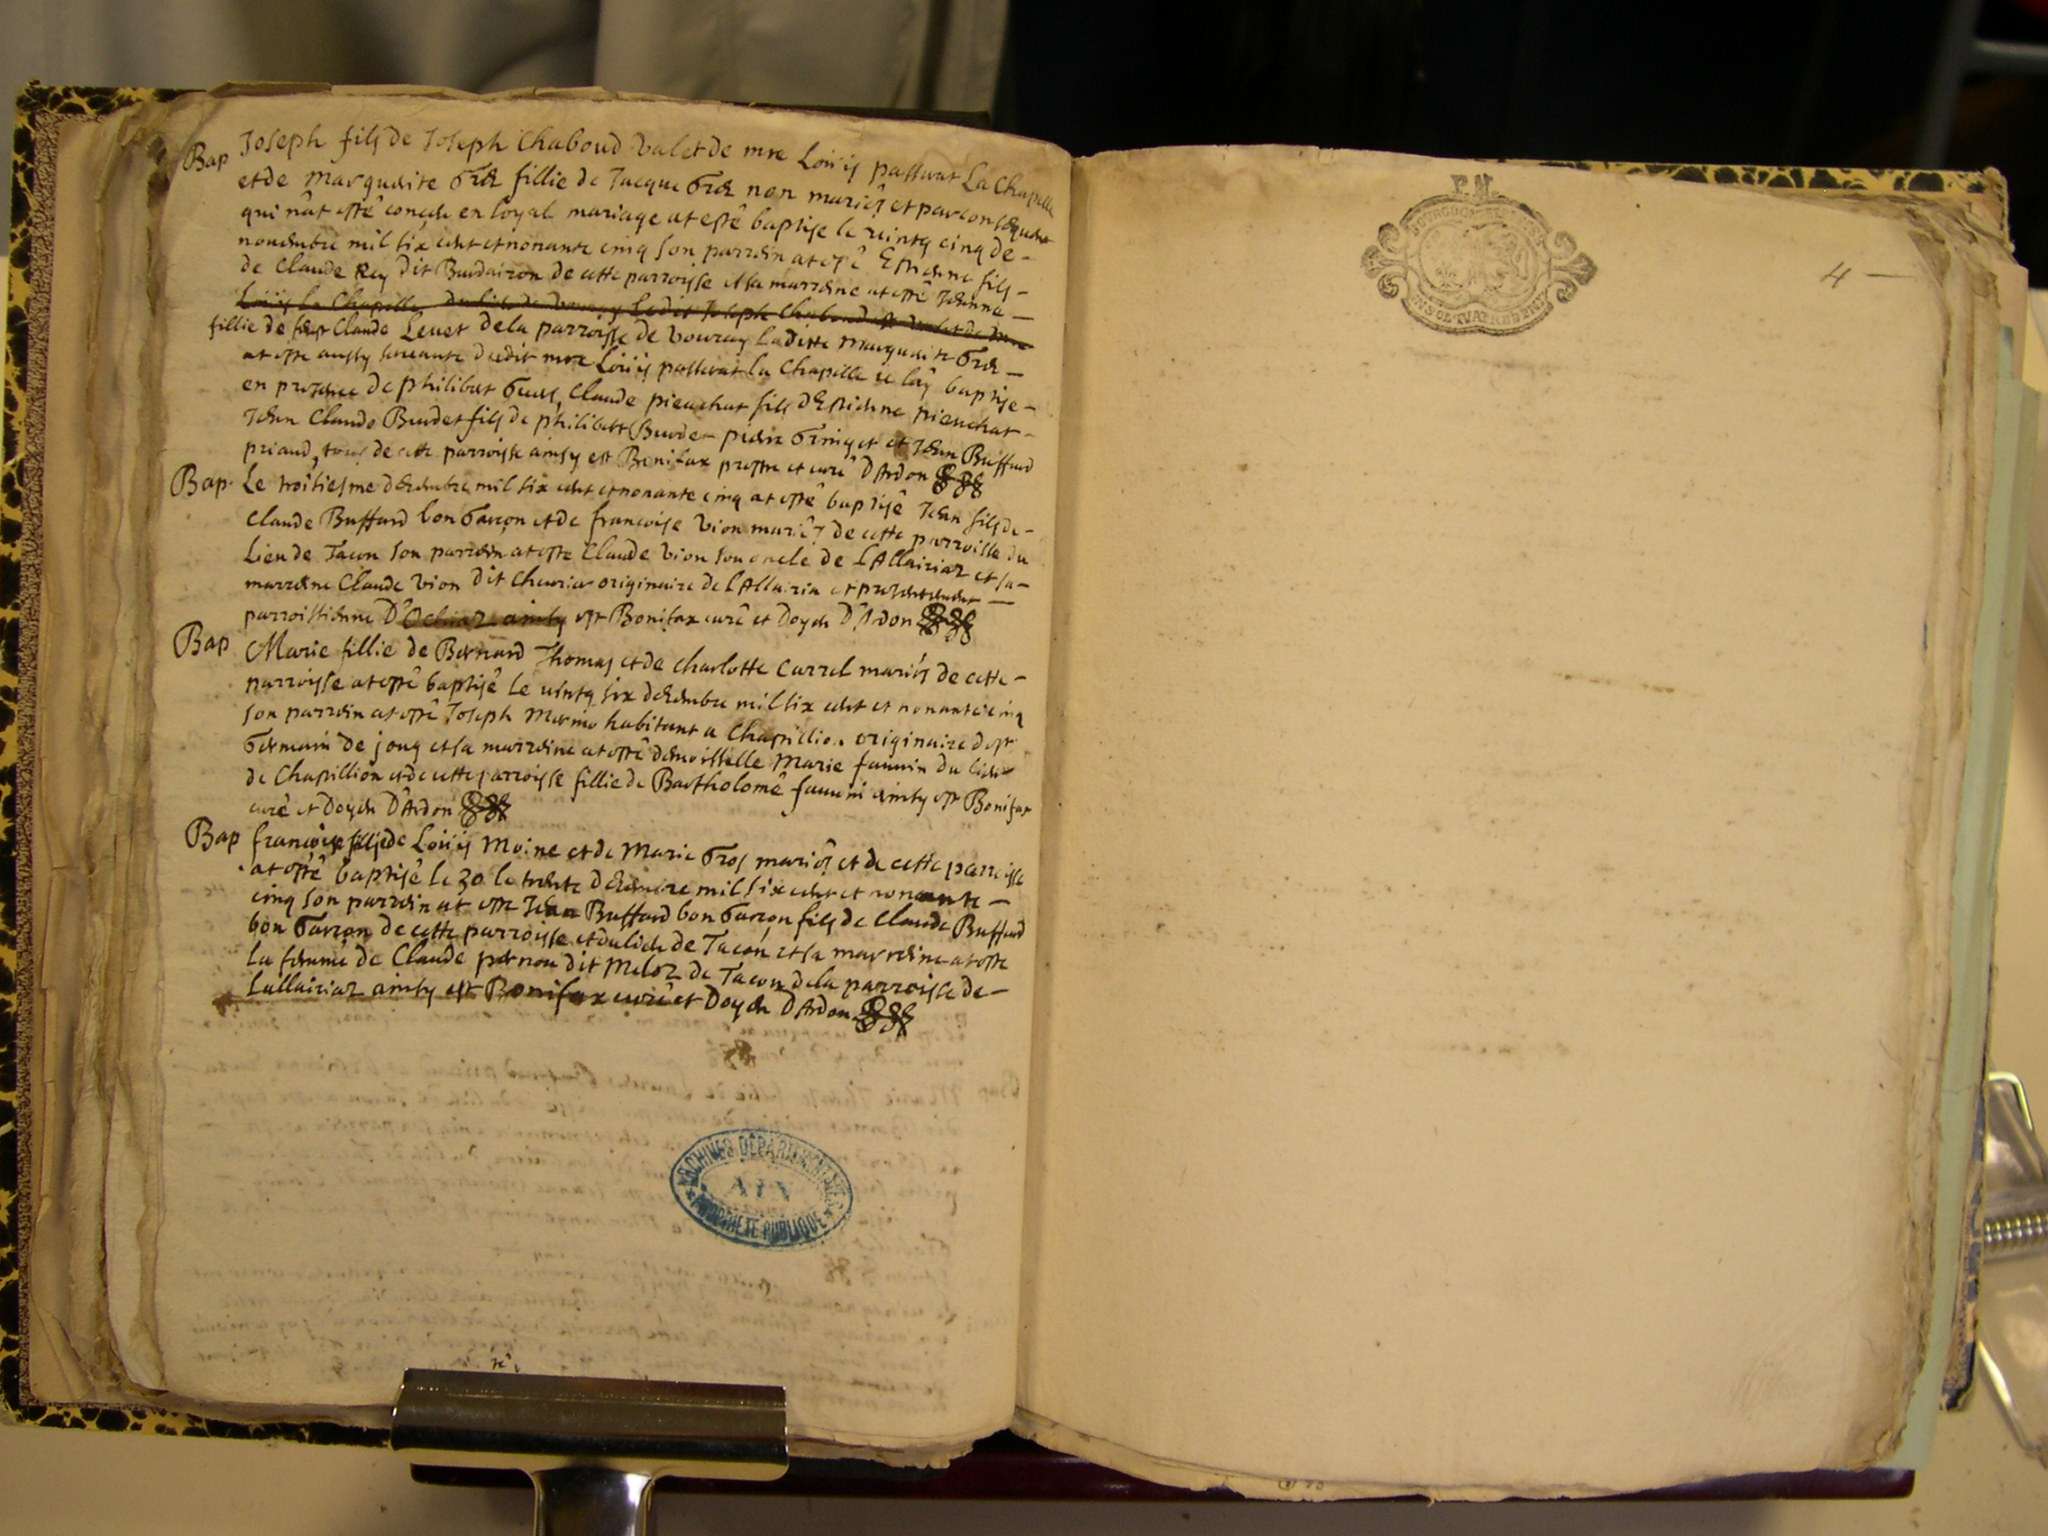 Bap Joseph fils de Joseph Chaboud valet de mre Loüis passerat La Chapelle
et de Marguerite fillie de Jacque non mariés et par consequent
qui n'at esté conceu en loyal mariage at esté baptise le vintq cinq de
novembre mil six cent et nonante cinq son parrein at esté Estienne fils
de Claude Rey dit Burdairon de cette parroisse et sa marreine at esté Jeanne
Loüis la Chapelle ledit Joseph Chaboud est valet de mre
fillie de feust Claude Levet de la parroisse de vouray Laditte Marguerite
at este aussy servante dudit mre Loüis passerat la Chapelle je l'ay baptise
en presence de philibert Claude pieuchat fils d'Estienne pieuchat
Jean Claude Burdet fils de philibert Burdet pierre et Jean Buffard
priaud, tous de cette parroisse ainsy est Bonifax prestre et curé D'Ardon
Bap. Le troisiesme decembre mil six cent et nonante cinq at esté baptisé Jean fils de
Claude Buffard bon Garçon et de francoise Vion mariés de cette parroisse du
Lieu de Tacon son parrein at este Claude Vion son oncle de L'Allairiaz et sa
marreine Claude Vion dit Chevriar originaire de l'Allairia et presentement
parroissienne D'Ochiaz ainsy est Bonifax curé et Doyen D'Ardon
Bap Marie fillie de Bernard Thomas et de Charlotte Carrel mariés de cette
parroisse at esté baptisé Le vintq six decembre mil six cent et nonante cinq
son parrein at esté Joseph Mermo habitant a Chastillion originaire de st
Germain de joug et sa marreine at esté demoisselle Marie fauvin du lieu
de Chastillion et de cette parroisse fillie de Bartholomé fauvin ainsy est Bonifax
curé et Doyen D'Ardon
Bap francoise fillie de Loüis Moine et de Marie Gros mariés et de cette parroisse
at esté baptisé le 30 le trente decembre mil six cent et nonante
cinq son parrein at este Jean Buffard bon Garçon fils de Claude Buffard
bon Garçon de cette parroisse et du lieu de Tacon et sa marreine at este
la femme de Claude pernou dit Meloz de Tacon de la parroisse de
Lallairiaz ainsy est Bonifax curé et Doyen D'Ardon
ARCHIVES DÉPARTEMENTALES
AIN
PROPRIÉTÉ PUBLIQUE
4